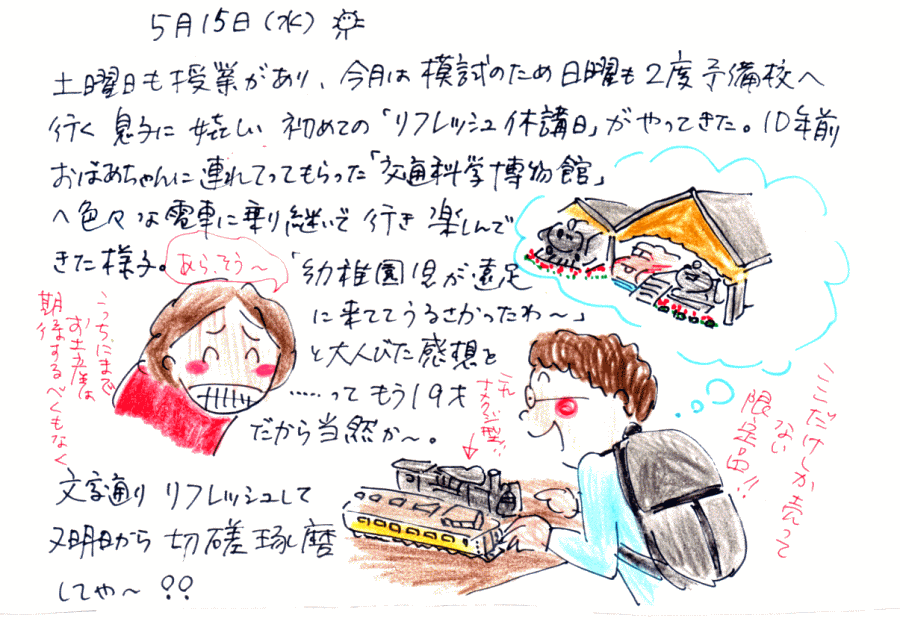 5月15日(水)
土曜日も授業があり、今月は模試のため日曜も2度予備校へ
行く息子に嬉しい初めての「リフレッシュ休講日」がやってきた。10年前
おばあちゃんに連れてってもらった「交通科学博物館」
へ色々な電車に乗り継いで行き楽しんで
きた様子。
あら、そう〜
「幼稚園児が遠足
に来ててうるさかったわ〜」
と大人びた感想を
……ってもう19才
だから当然か〜。
こっちにまで
お土産は
期待するべくもなく
これ
ナメクジ型!!
ここだけしか売って
ない
限定品!!
文字通りリフレッシュして
又明日から切磋琢磨
してや〜!!